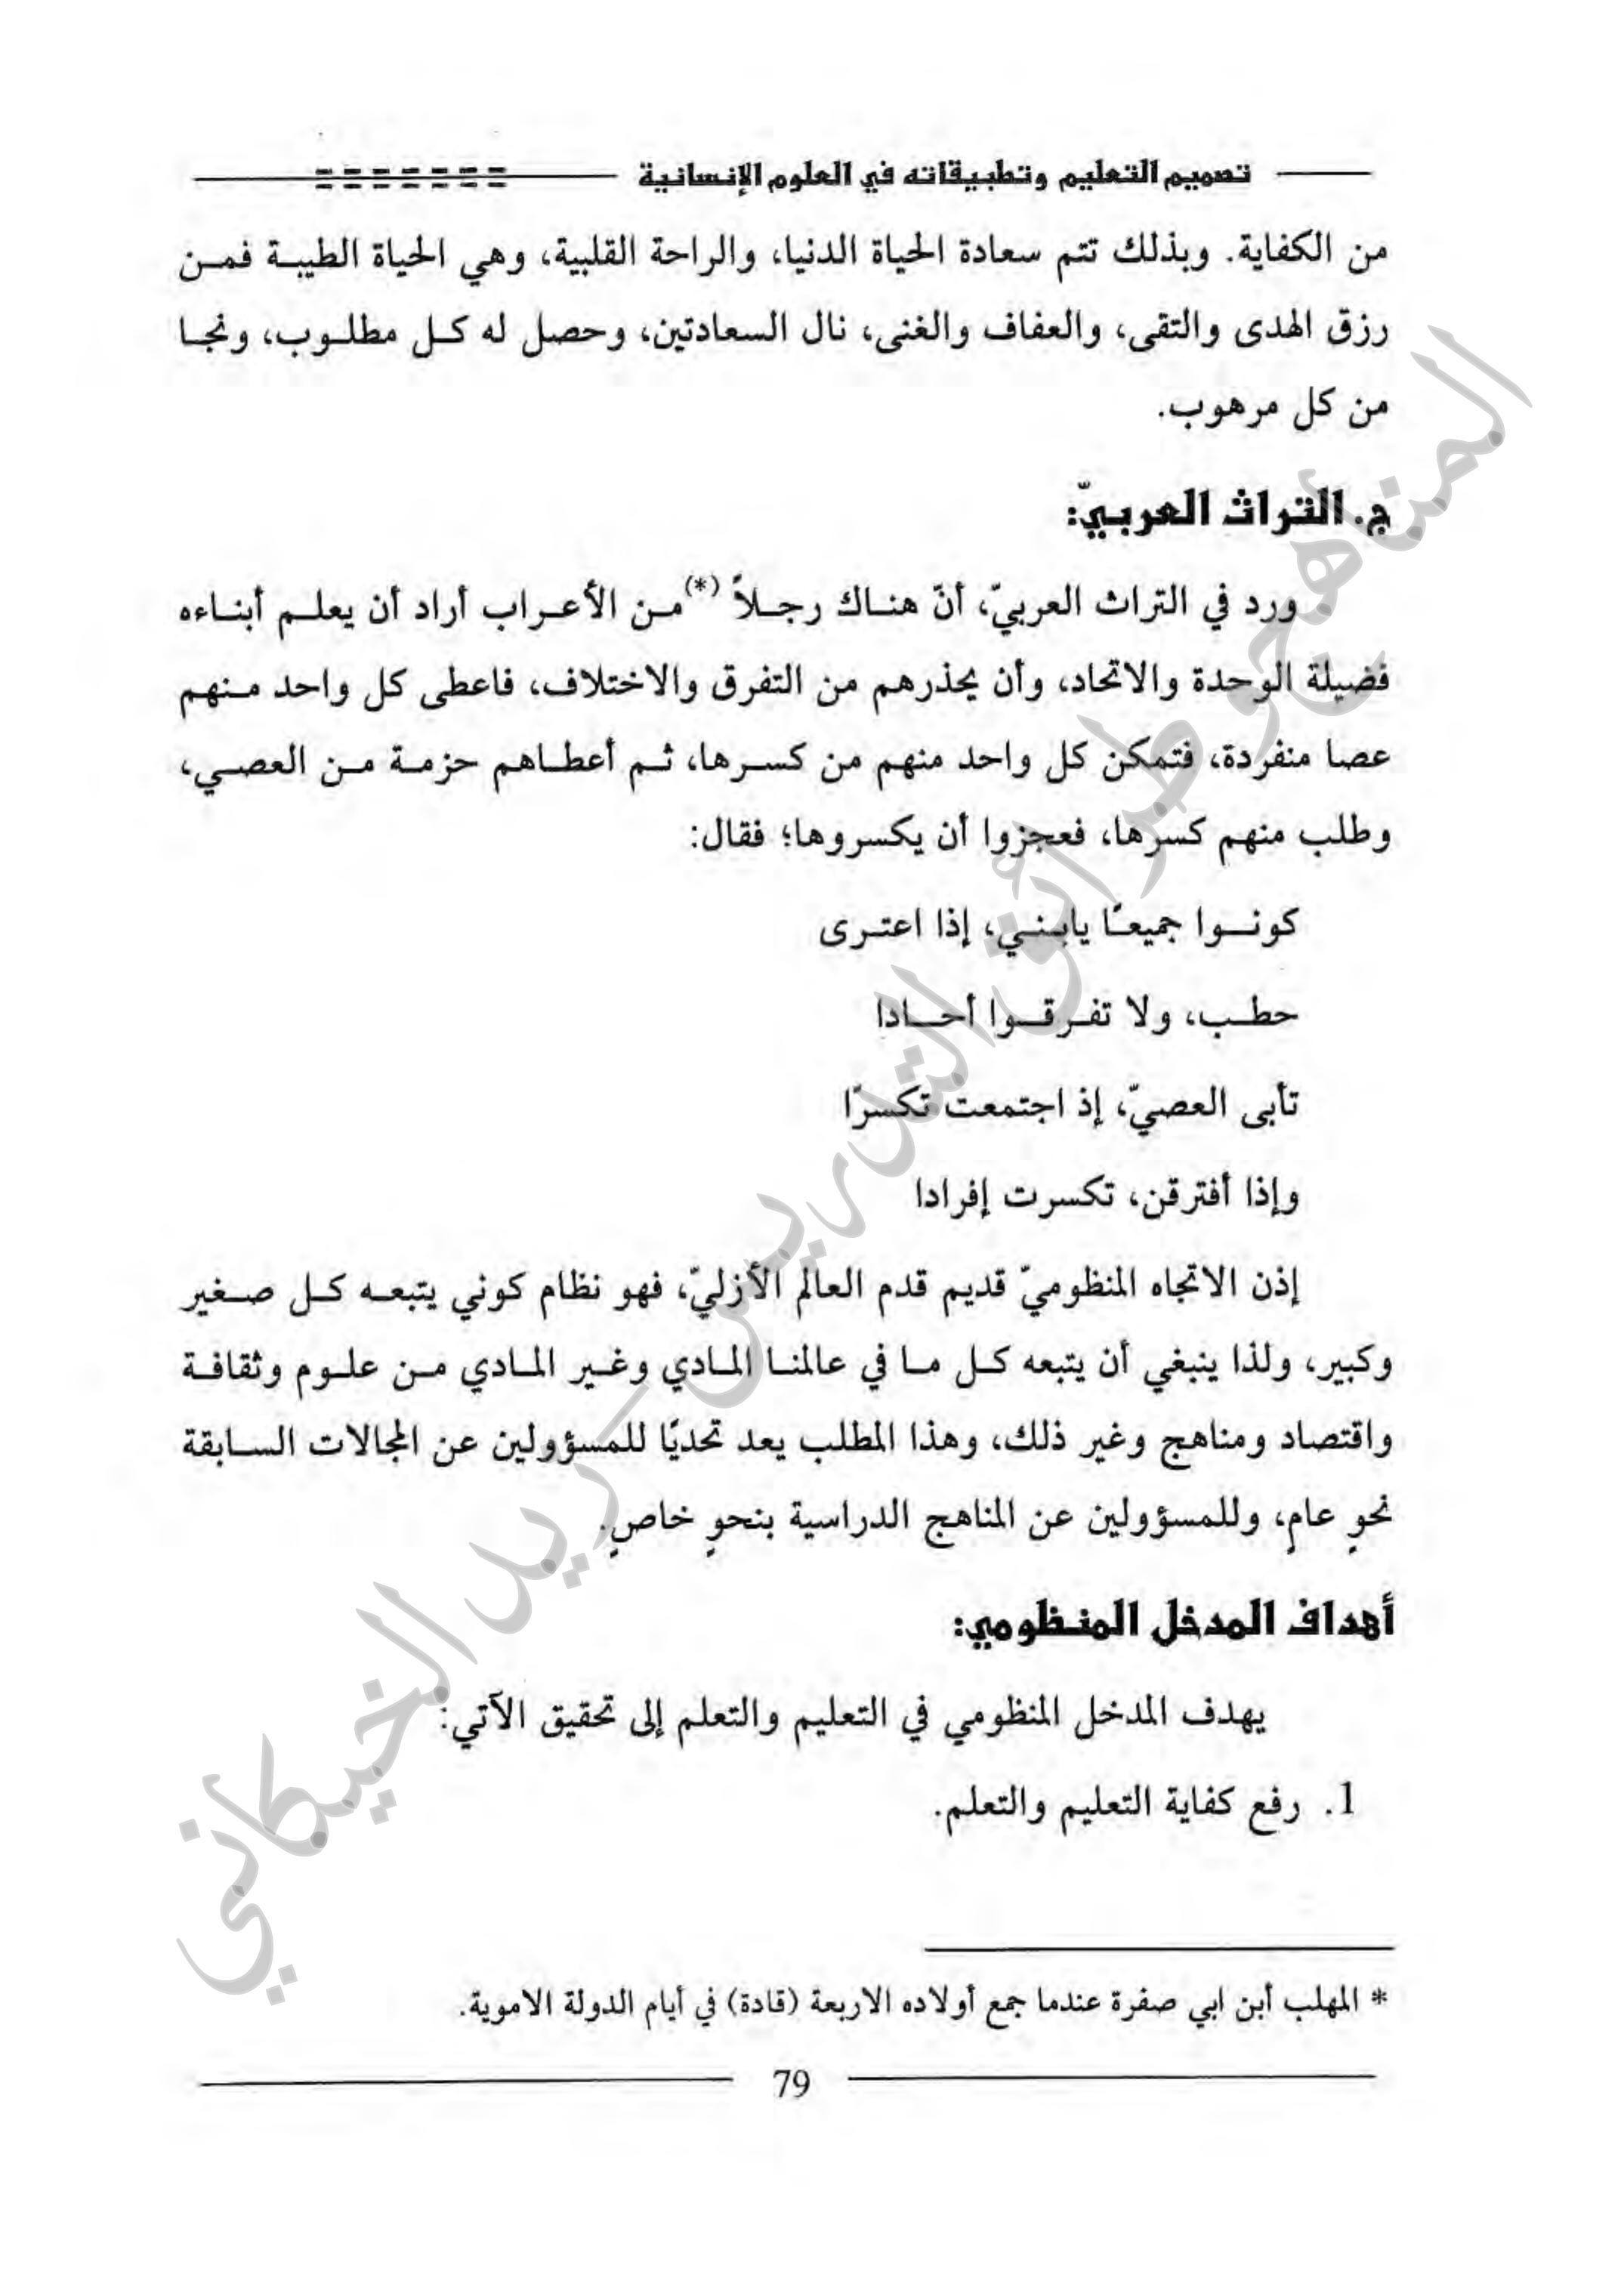 تصميم التعليم وتطبيقاته في العلوم الإنسانية
من الكفاية. وبذلك تتم سعادة الحياة الدنيا، والراحة القلبية، وهي الحياة الطيبة فمن
رزق الهدى والتقى، والعفاف والغنى، نال السعادتين، وحصل له كل مطلوب، ونجا
من كل مرهوب.
ج. التراث العربيّ:
ورد في التراث العربيّ، أنّ هناك رجلاً (*) من الأعراب أراد أن يعلم أبناءه
فضيلة الوحدة والاتحاد، وأن يحذرهم من التفرق والاختلاف، فاعطى كل واحد منهم
عصا منفردة، فتمكن كل واحد منهم من كسرها، ثم أعطاهم حزمة من العصي،
وطلب منهم كسرها، فعجزوا أن يكسروها؛ فقال:
كونوا جميعًا يابني، إذا اعترى
حطب، ولا تفرقوا أحادا
تأبى العصيّ، إذ اجتمعت تكسرًا
وإذا أفترقن، تكسرت إفرادا
إذن الاتجاه المنظوميّ قديم قدم العالم الأزليّ، فهو نظام كوني يتبعه كل صغير
وكبير، ولذا ينبغي أن يتبعه كل ما في عالمنا المادي وغير المادي من علوم وثقافة
واقتصاد ومناهج وغير ذلك، وهذا المطلب يعد تحديًا للمسؤولين عن المجالات السابقة
نحوٍ عامٍ، وللمسؤولين عن المناهج الدراسية بنحوٍ خاصٍ.
أهداف المدخل المنظومي:
يهدف المدخل المنظومي في التعليم والتعلم إلى تحقيق الآتي:
1. رفع كفاية التعليم والتعلم.
* المهلب أبن ابي صفرة عندما جمع أولاده الاربعة (قادة) في أيام الدولة الاموية.
79
المناهج وطرائق التدريس - ريد الخيكاني